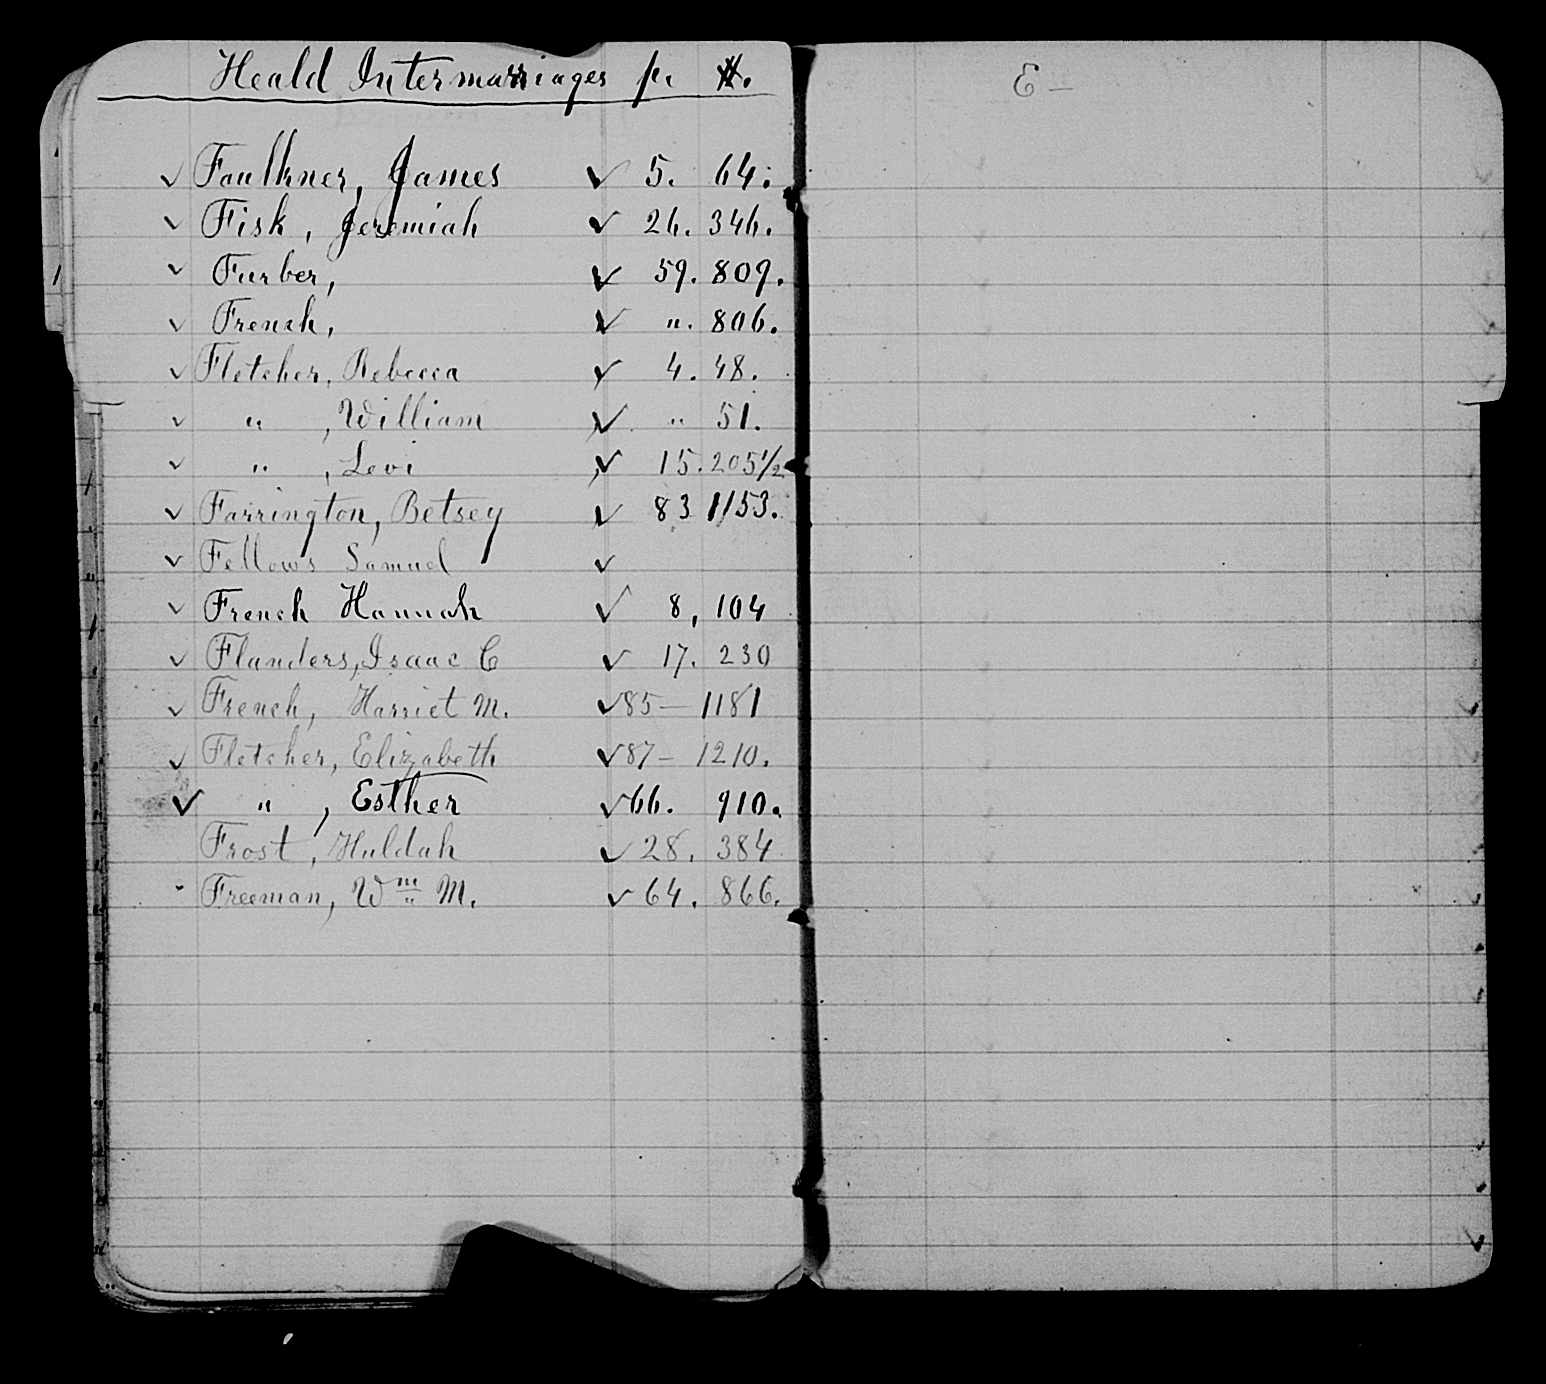 Heald Intermarriages p. #.
✓ Faulkner, James ✓ 5. 64.
✓ Fisk, Jeremiah ✓ 26. 346.
✓ Furber, ✓ 59. 809.
✓ French, ✓ ". 806.
✓ Fletcher, Rebecca ✓ 4. 48.
✓ " , William ✓ " 51.
✓ " , Levi ✓ 15. 205½
✓ Farrington, Betsey ✓ 83 1153.
✓ Fellows Samuel ✓
✓ French Hannah ✓ 8, 104
✓ Flanders, Isaac C ✓ 17. 230
✓ French, Harriet M. ✓ 85— 1181
✓ Fletcher, Elizabeth ✓ 87— 1210.
✓ " , Esther ✓ 66. 910.
Frost, Huldah ✓ 28. 384
Freeman, Wm M. ✓ 64. 866.
E —